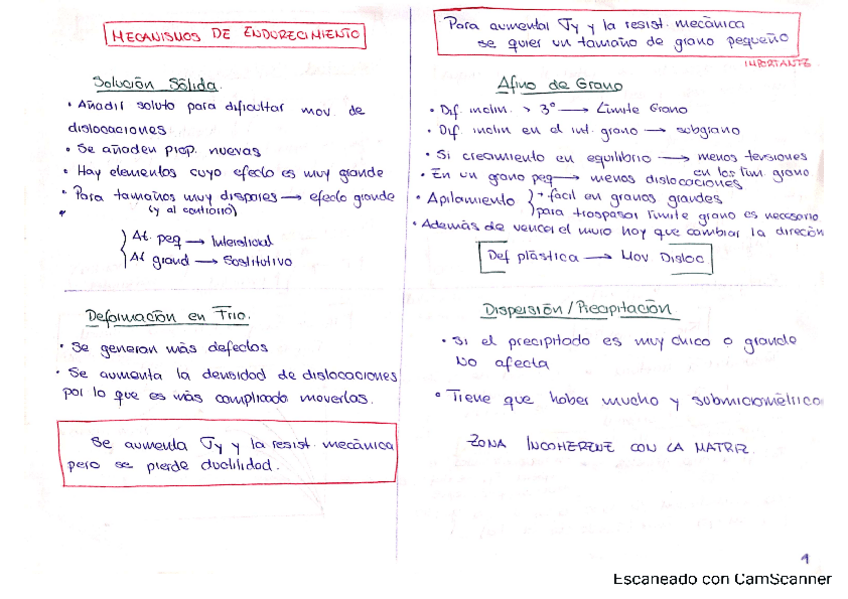 MECANISMOS DE ENDURECIMIENTO
Solución Sólida.
• Añadir soluto para dificultar mov. de
dislocaciones
• Se añaden prop. nuevas
• Hay elementos cuyo efecto es muy grande
• Para tamaños muy dispares → efecto grande
(y al contrario)
At. peq → Intersticial
At grand → Sostitutivo
Deformación en Frío.
• Se generan más defectos
• Se aumenta la densidad de dislocaciones
por lo que es más complicado moverlas.
Se aumenta σy y la resist. mecánica
pero se pierde ductilidad.
Para aumentar σy y la resist. mecánica
se quier un tamaño de grano pequeño
IMPORTANTE
Afino de Grano
• Dif. inclin. > 3° → Límite Grano
• Dif. inclin en el int. grano → subgrano
• Si crecimiento en equilibrio → menos tensiones
en los lím. grano
• En un grano peq → menos dislocaciones
• Apilamiento → fácil en granos grandes
para traspasar límite grano es necesario
• Además de vencer el muro hay que cambiar la direción
Def plástica → Mov Disloc.
Dispersión/Precipitación
• Si el precipitado es muy chico o grande
No afecta
• Tiene que haber mucho y submicrométrico
ZONA INCOHERENTE CON LA MATRIZ.
1
Escaneado con CamScanner